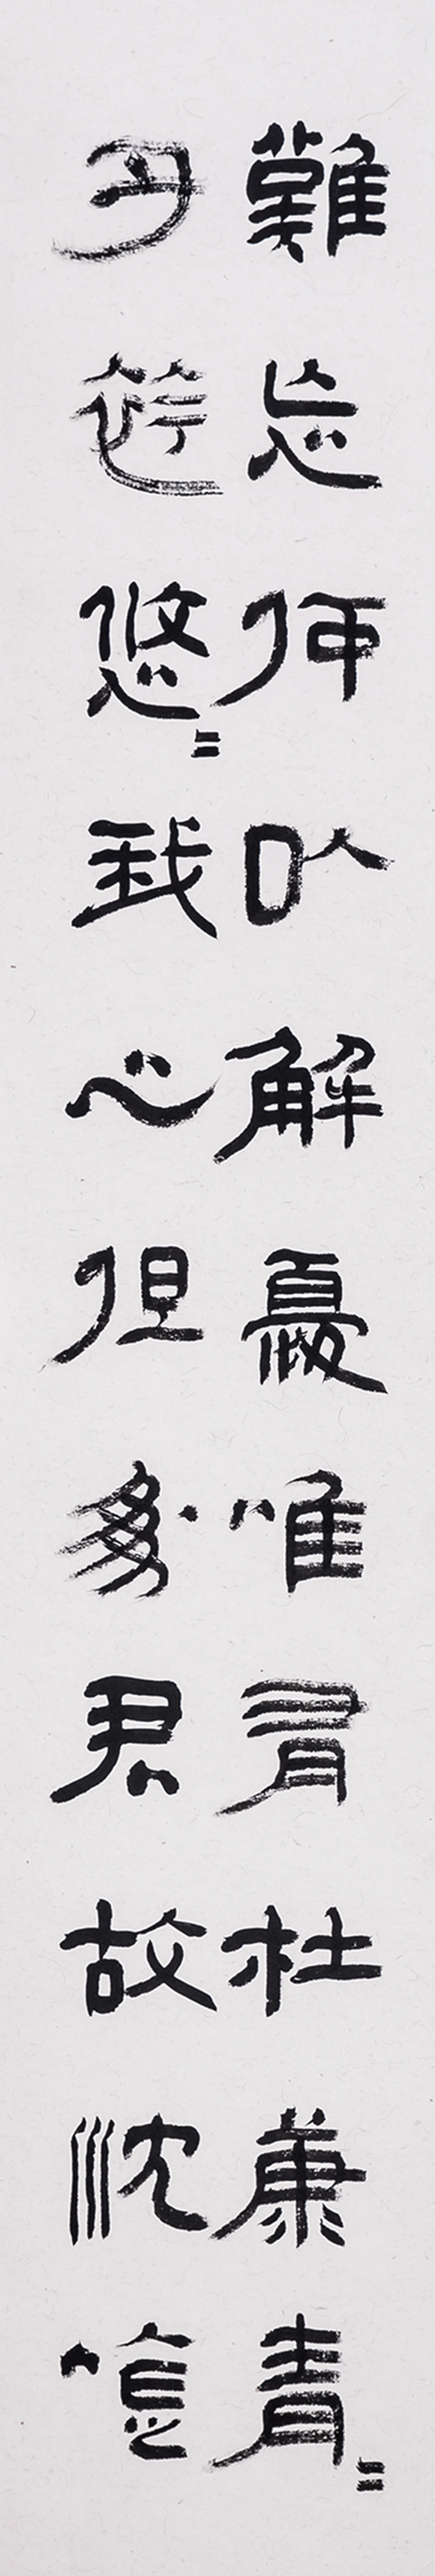 難忘何以解憂唯有杜康青〻
子衿悠〻我心但為君故沈吟